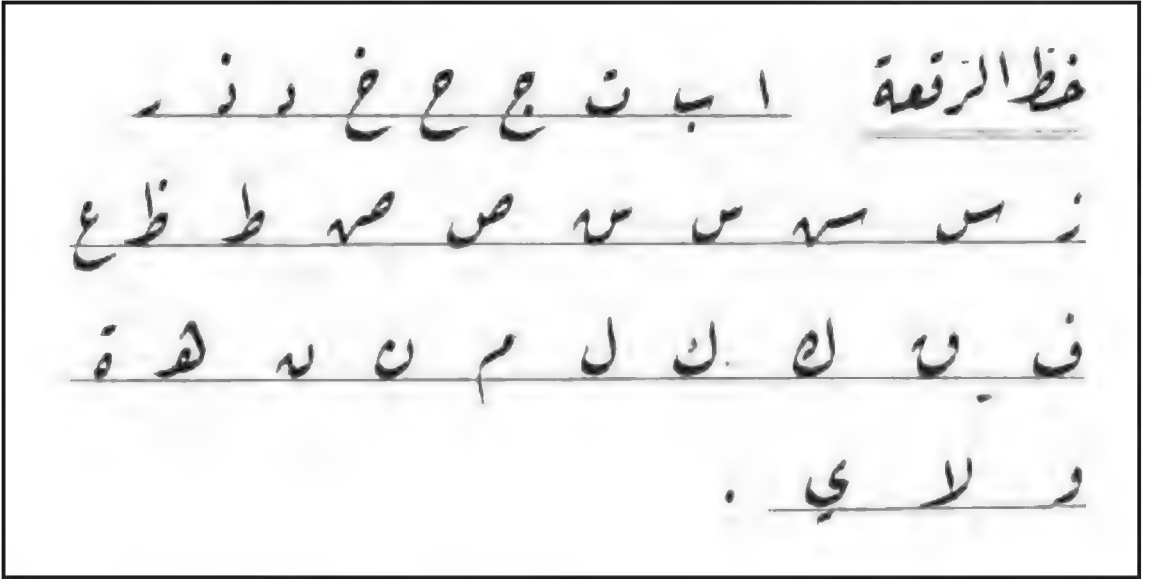 خط الرقعة ا ب ت ج ح خ د ذ ر
ز س س س س ص ص ط ظ ع
ف ق ك ك ل م ن ن هـ ة
و لا ي .